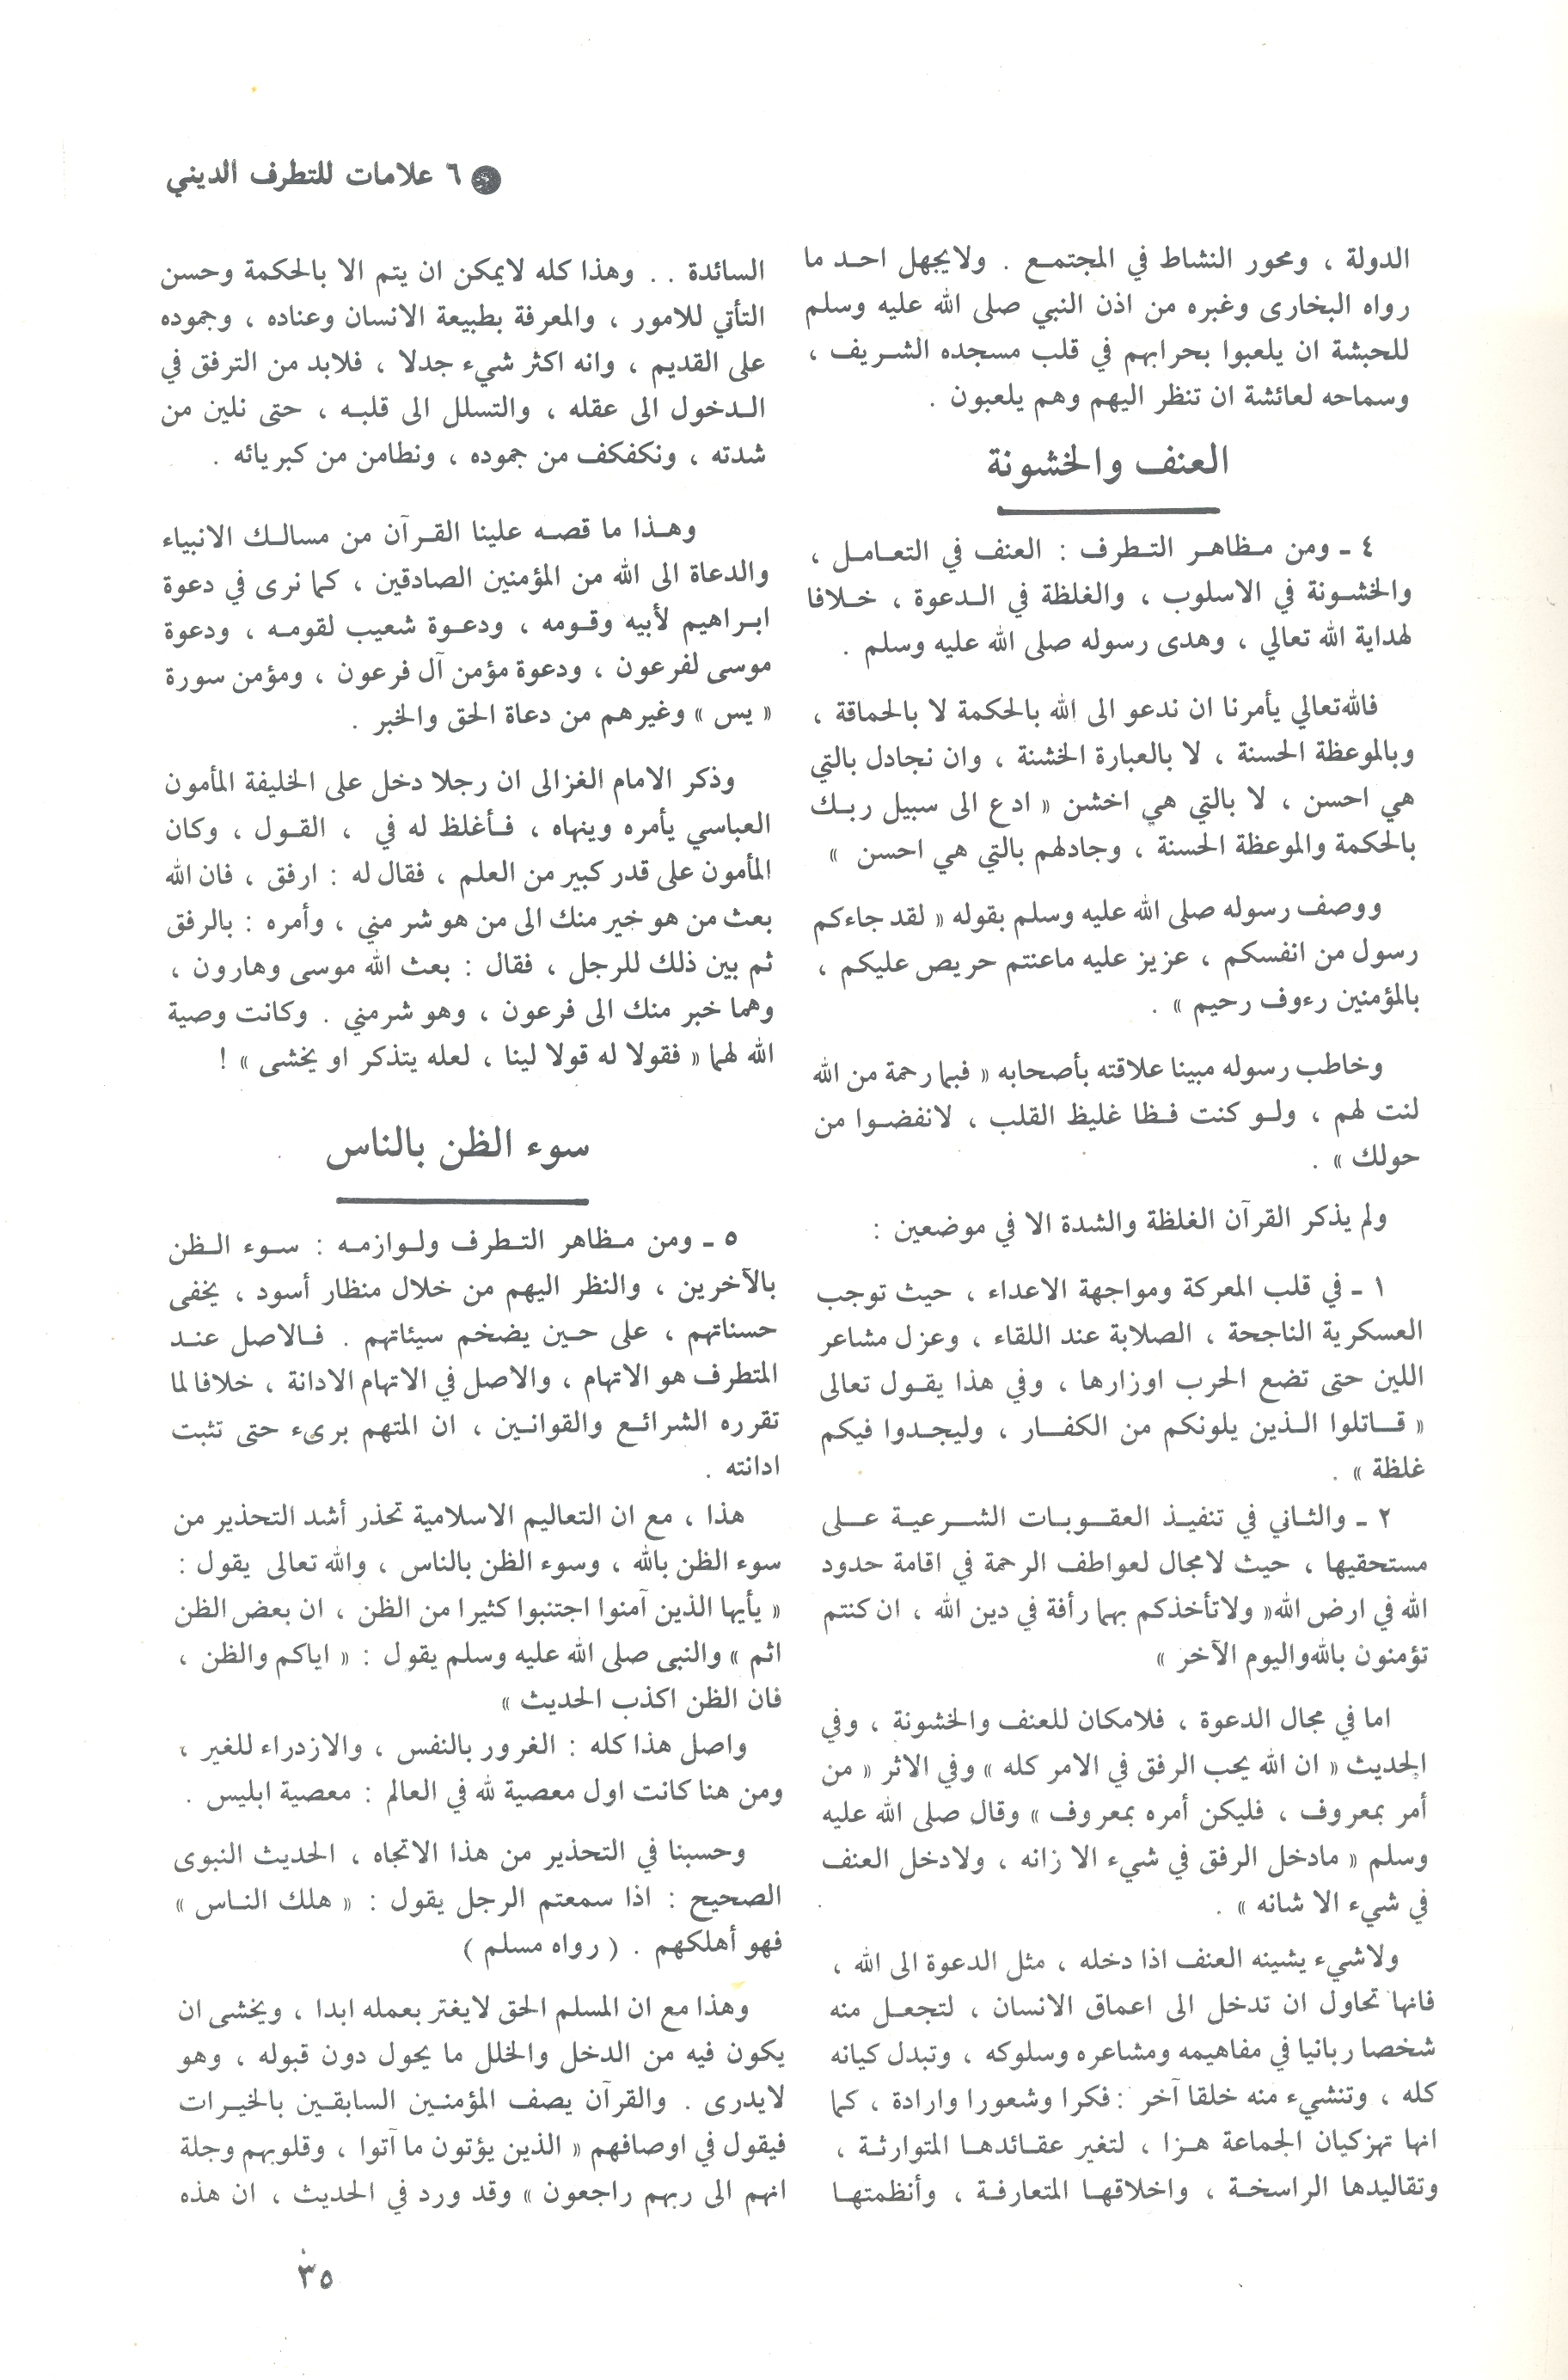 ٦ علامات للتطرف الديني
الدولة ، ومحور النشاط في المجتمع . ولايجهل احد ما
رواه البخارى وغبره من اذن النبي صلى الله عليه وسلم
للحبشة ان يلعبوا بحرابهم في قلب مسجده الشريف ،
وسماحه لعائشة ان تنظر اليهم وهم يلعبون .
العنف والخشونة
٤ ـ ومن مظاهر التطرف : العنف في التعامل ،
والخشونة في الاسلوب ، والغلظة في الدعوة ، خلافا
لهداية الله تعالي ، وهدى رسوله صلى الله عليه وسلم .
فالله تعالي يأمرنا ان ندعو الى الله بالحكمة لا بالحماقة ،
وبالموعظة الحسنة ، لا بالعبارة الخشنة ، وان نجادل بالتي
هي احسن ، لا بالتي هي اخشن « ادع الى سبيل ربك
بالحكمة والموعظة الحسنة ، وجادلهم بالتي هي احسن »
ووصف رسوله صلى الله عليه وسلم بقوله « لقد جاءكم
رسول من انفسكم ، عزيز عليه ماعنتم حريص عليكم ،
بالمؤمنين رءوف رحيم » .
وخاطب رسوله مبينا علاقته بأصحابه « فبما رحمة من الله
لنت لهم ، ولو كنت فظا غليظ القلب ، لانفضوا من
حولك » .
ولم يذكر القرآن الغلظة والشدة الا في موضعين :
١ ـ في قلب المعركة ومواجهة الاعداء ، حيث توجب
العسكرية الناجحة ، الصلابة عند اللقاء ، وعزل مشاعر
اللين حتى تضع الحرب اوزارها ، وفي هذا يقول تعالى
« قاتلوا الذين يلونكم من الكفار ، وليجدوا فيكم
غلظة » .
٢ ـ والثاني في تنفيذ العقوبات الشرعية على
مستحقيها ، حيث لامجال لعواطف الرحمة في اقامة حدود
الله في ارض الله« ولاتأخذكم بهما رأفة في دين الله ، ان كنتم
تؤمنون بالله واليوم الآخر »
اما في مجال الدعوة ، فلامكان للعنف والخشونة ، وفي
الحديث « ان الله يحب الرفق في الامر كله » وفي الاثر « من
أمر بمعروف ، فليكن أمره بمعروف » وقال صلى الله عليه
وسلم « مادخل الرفق في شيء الا زانه ، ولادخل العنف
في شيء الا شانه » .
ولاشيء يشينه العنف اذا دخله ، مثل الدعوة الى الله ،
فانها تحاول ان تدخل الى اعماق الانسان ، لتجعل منه
شخصا ربانيا في مفاهيمه ومشاعره وسلوكه ، وتبدل كيانه
كله ، وتنشيء منه خلقا آخر : فكرا وشعورا وارادة ، كما
انها تهزكيان الجماعة هزا ، لتغير عقائدها المتوارثة ،
وتقاليدها الراسخة ، واخلاقها المتعارفة ، وأنظمتها
السائدة . . وهذا كله لايمكن ان يتم الا بالحكمة وحسن
التأتي للامور ، والمعرفة بطبيعة الانسان وعناده ، وجموده
على القديم ، وانه اكثر شيء جدلا ، فلابد من الترفق في
الدخول الى عقله ، والتسلل الى قلبه ، حتى نلين من
شدته ، ونكفكف من جموده ، ونطامن من كبريائه .
وهذا ما قصه علينا القرآن من مسالك الانبياء
والدعاة الى الله من المؤمنين الصادقين ، كما نرى في دعوة
ابراهيم لأبيه وقومه ، ودعوة شعيب لقومه ، ودعوة
موسى لفرعون ، ودعوة مؤمن آل فرعون ، ومؤمن سورة
« يس » وغيرهم من دعاة الحق والخبر .
وذكر الامام الغزالى ان رجلا دخل على الخليفة المأمون
العباسي يأمره وينهاه ، فأغلظ له في ، القول ، وكان
المأمون على قدر كبير من العلم ، فقال له : ارفق ، فان الله
بعث من هو خير منك الى من هو شر مني ، وأمره : بالرفق
ثم بين ذلك للرجل ، فقال : بعث الله موسى وهارون ،
وهما خبر منك الى فرعون ، وهو شرمني . وكانت وصية
الله لهما « فقولا له قولا لينا ، لعله يتذكر او يخشى » !
سوء الظن بالناس
٥ ـ ومن مظاهر التطرف ولوازمه : سوء الظن
بالآخرين ، والنظر اليهم من خلال منظار أسود ، يخفى
حسناتهم ، على حين يضخم سيئاتهم . فالاصل عند
المتطرف هو الاتهام ، والاصل في الاتهام الادانة ، خلافا لما
تقرره الشرائع والقوانين ، ان المتهم برىء حتى تثبت
ادانته .
هذا ، مع ان التعاليم الاسلامية تحذر أشد التحذير من
سوء الظن بالله ، وسوء الظن بالناس ، والله تعالى يقول :
« يأيها الذين آمنوا اجتنبوا كثيرا من الظن ، ان بعض الظن
اثم » والنبى صلى الله عليه وسلم يقول : « اياكم والظن ،
فان الظن اكذب الحديث »
واصل هذا كله : الغرور بالنفس ، والازدراء للغير ،
ومن هنا كانت اول معصية لله في العالم : معصية ابليس .
وحسبنا في التحذير من هذا الاتجاه ، الحديث النبوى
الصحيح : اذا سمعتم الرجل يقول : « هلك الناس »
فهو أهلكهم . ( رواه مسلم )
وهذا مع ان المسلم الحق لايغتر بعمله ابدا ، ويخشى ان
يكون فيه من الدخل والخلل ما يحول دون قبوله ، وهو
لايدرى . والقرآن يصف المؤمنين السابقين بالخيرات
فيقول في اوصافهم « الذين يؤتون ما آتوا ، وقلوبهم وجلة
انهم الى ربهم راجعون » وقد ورد في الحديث ، ان هذه
٣٥